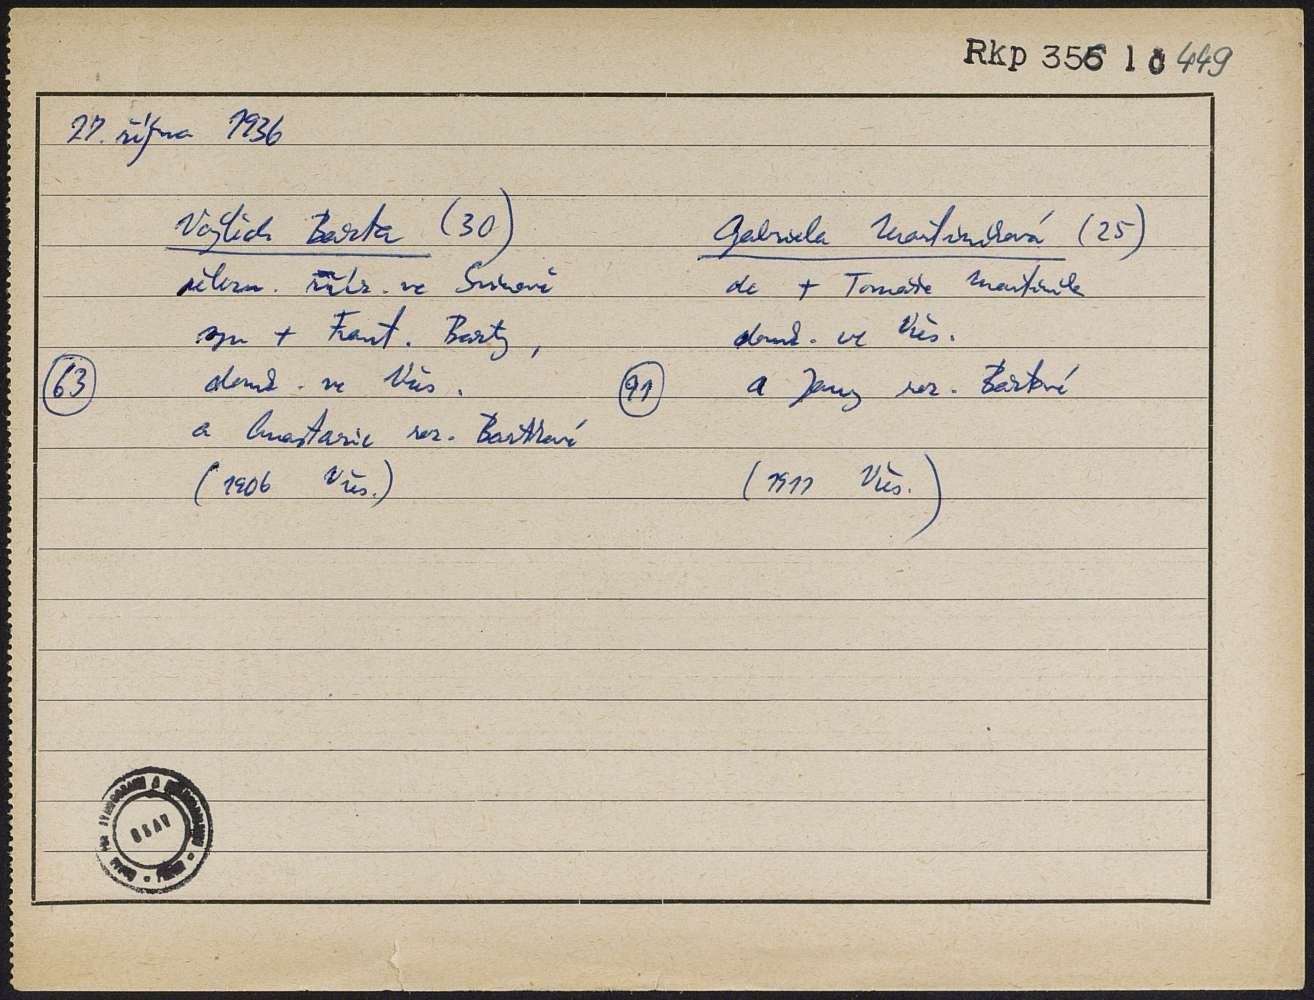 Rkp 356 1 č 449
27. října 1936
Vojtěch Barta (30)
železn. zříz. ve Svinově
syn + Frant. Barty,
63 domk. ve Vřes.
a Anastazie roz. Bartkové
(1906 Vřes.)
Gabriela Martiníková (25)
dc + Tomáše Martiníka
domk. ve Vřes.
91 a Jany roz. Bartové
(1911 Vřes.)